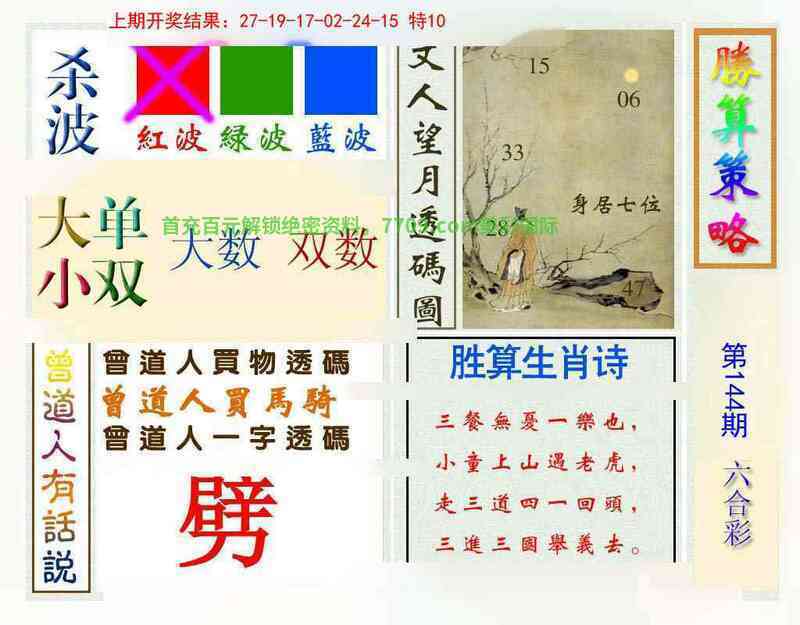 上期开奖结果：27-19-17-02-24-15 特10
杀波
紅波 緑波 藍波
大单小双
大数 双数
文人望月透碼圖
15
06
33
身居七位
28
47
勝算策略
第144期 六合彩
曾道人有話説
曾道人買物透碼
曾道人買馬騎
曾道人一字透碼
劈
胜算生肖诗
三餐無憂一樂也，
小童上山遇老虎，
走三道四一回頭，
三進三國舉義去。